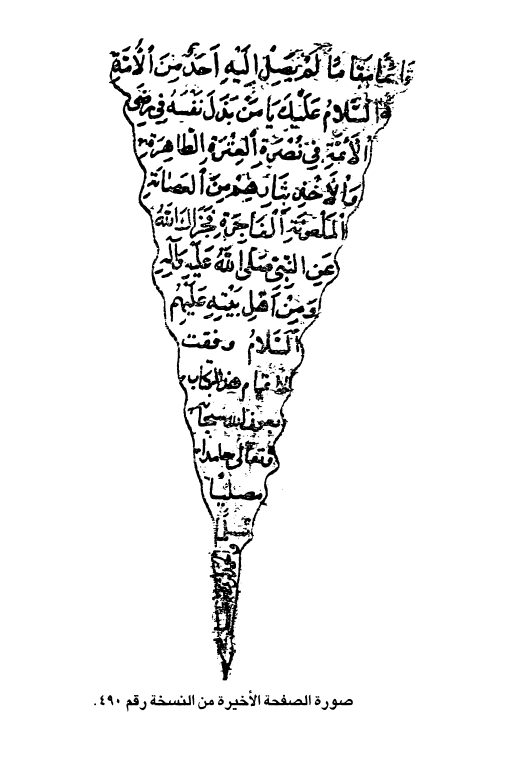 مَقَامًا لَمْ يَصِلْ إِلَيْهِ أَحَدٌ مِنَ الْأُمَّةِ
السَّلَامُ عَلَيْكَ يَا مَنْ بَذَلَ نَفْسَهُ فِي رِضَى
الْأَئِمَّةِ فِي نُصْرَةِ الْعِتْرَةِ الطَّاهِرَةِ
وَالْآخِذِ بِثَارِهِمْ مِنَ الْعِصَابَةِ
الْمَلْعُونَةِ الْفَاجِرَةِ فَجَزَاكَ اللهُ
عَنِ النَّبِيِّ صَلَّى اللهُ عَلَيْهِ وَآلِهِ
وَمِنْ أَهْلِ بَيْتِهِ عَلَيْهِمُ
السَّلَامُ وفقت
هذا الكتاب
بعون الله سبحانه
وتعالى حامدا
مصليا
صورة الصفحة الأخيرة من النسخة رقم ٤٩٠.